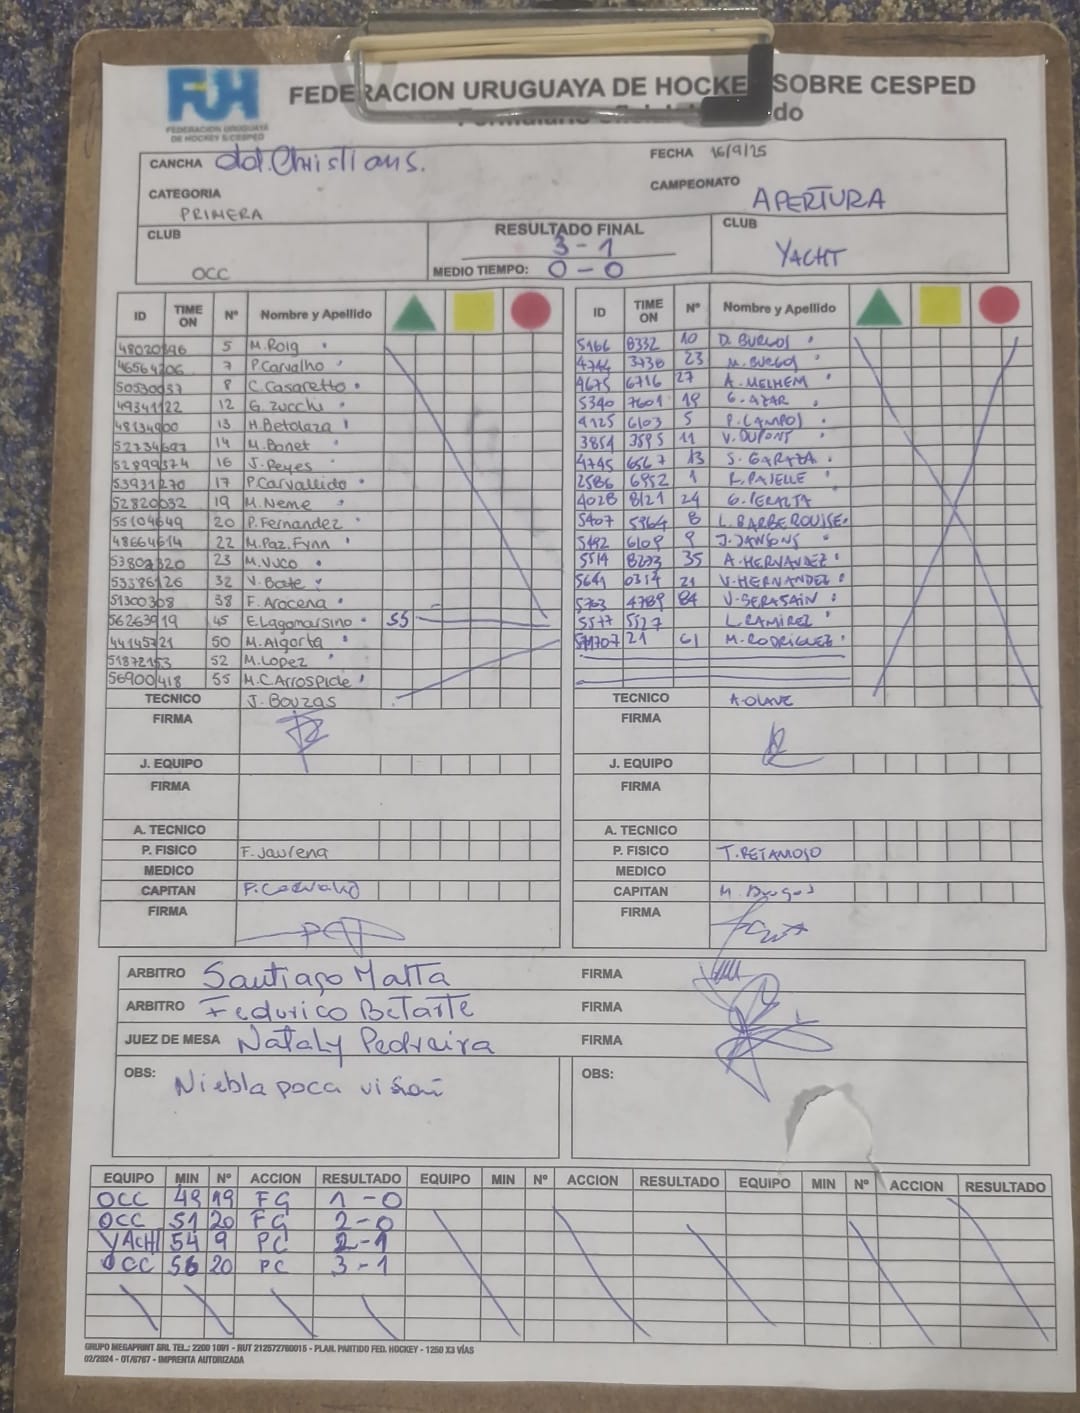 FUH
FEDERACION URUGUAYA
DE HOCKEY S/CESPED
FEDERACION URUGUAYA DE HOCKE SOBRE CESPED
CANCHA Old.Christians. FECHA 16/9/25
CATEGORIA PRIMERA CAMPEONATO APERTURA
CLUB OCC RESULTADO FINAL 3-1 CLUB YACHT
MEDIO TIEMPO: 0-0
ID TIME ON Nº Nombre y Apellido
48020896 5 M.Roig
46564206 7 P.Carvalho
50530037 8 C.Casaretto
49341122 12 G.Zucchi
48134900 13 H.Betolaza
52734697 14 M.Bonet
52899574 16 J.Reyes
53931270 17 P.Carvallido
52820032 19 M.Neme
55104649 20 P.Fernandez
48664614 22 M.Paz.Fynn
53802320 23 M.Vuco
53386126 32 V.Baste
51300308 38 F.Arocena
56263919 45 E.Lagomarsino 55
44145721 50 M.Algorta
51872153 52 M.Lopez
56900418 55 M.C.Arrospide
TECNICO J.Bouzas
FIRMA
J. EQUIPO
FIRMA
A. TECNICO
P. FISICO F.Jaurena
MEDICO
CAPITAN P.Carvalho
FIRMA
ID TIME ON Nº Nombre y Apellido
5166 8332 10 D.BURGOS
4744 3738 23 M.BURGOS
4675 6716 27 A.MELHEM
5340 7601 19 G.AZAR
4125 6103 5 P.CAMPOS
3854 3595 11 V.DUPONT
4745 6567 13 S.GARAZA
2586 6952 1
4028 8121 24 G.PERALTA
5407 5964 8 L.BARBEROUSSE
5492 6109 9 J.JANSONS
5514 8273 35 A.HERNANDEZ
5641 0354 21 V.HERNANDEZ
5763 4789 84 V.BERASAIN
5577 5527 L.RAMIREZ
571707 21 61 M.RODRIGUEZ
TECNICO A.OLAVE
FIRMA
J. EQUIPO
FIRMA
A. TECNICO
P. FISICO T.RETAMOSO
MEDICO
CAPITAN M.Burgos
FIRMA
ARBITRO Santiago Matta FIRMA
ARBITRO Federico Betarte FIRMA
JUEZ DE MESA Nataly Pedreira FIRMA
OBS: Niebla poca OBS:
EQUIPO MIN Nº ACCION RESULTADO EQUIPO MIN Nº ACCION RESULTADO EQUIPO MIN Nº ACCION RESULTADO
OCC 49 19 FG 1-0
OCC 51 20 FG 2-0
YACHT 54 9 PC 2-1
OCC 56 20 PC 3-1
GRUPO MEGAPRINT SRL TEL.: 2200 1091 - RUT 212572760015 - PLAN. PARTIDO FED. HOCKEY - 1250 X3 VÍAS
02/2024 - OT/6767 - IMPRENTA AUTORIZADA